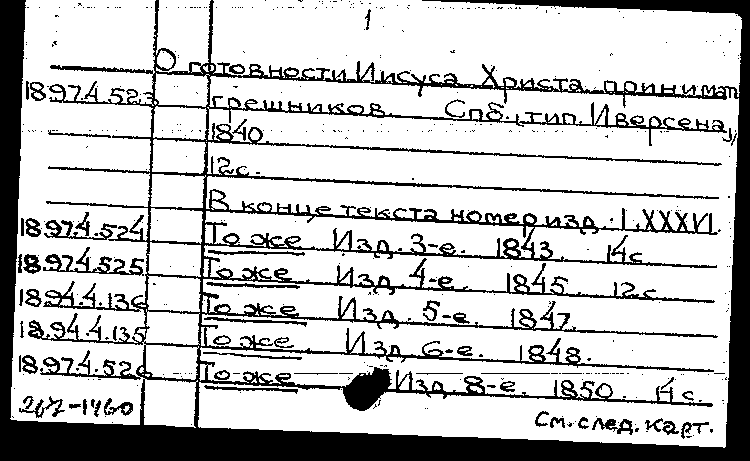 1
О готовности Иисуса Христа принимат
18.97.4.523 грешников. Спб., тип. Иверсена,
1840.
12 с.
В конце текста номер изд.: LXXXVI.
18.97.4.524 То же. Изд. 3-е. 1843. 14 с.
18.97.4.525 То же. Изд. 4-е. 1845. 12 с.
18.94.4.136 То же. Изд. 5-е. 1847.
18.94.4.135 То же. Изд. 6-е. 1848.
18.97.4.526 То же. Изд. 8-е. 1850. 14 с.
267-1460 См. след. карт.